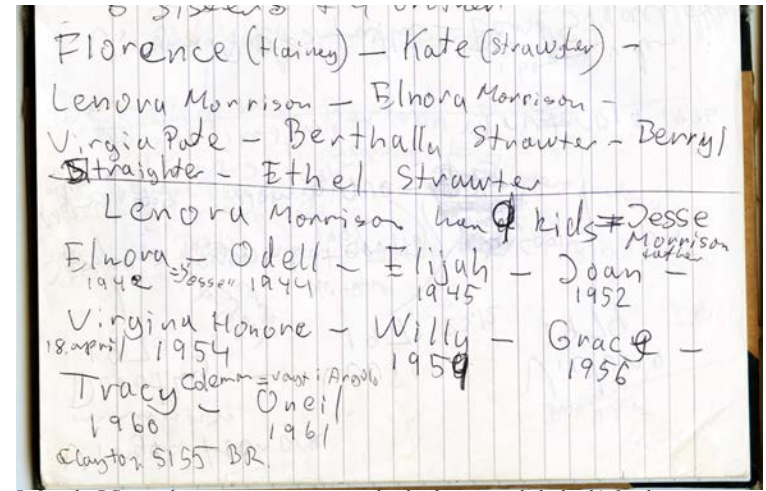 6 sisters + 4 brother
Florence (Hainey) - Kate (Strawter) -
Lenora Morrison - Elnora Morrison -
Virgia Pate - Berthally Strawter - Berryl
Straighter - Ethel Strawter
Lenora Morrison han 9 kids = Jesse
Morrison
father
Elnora - Odell - Elijah - Joan -
1942 = "Jesse" 1944 1945 1952
Virgina Honore - Willy - Grace -
18. april 1954 1959 1956
Tracy Colemn = vart i Angola
- Oneil
1960 1961
Clayton 5155 BR.